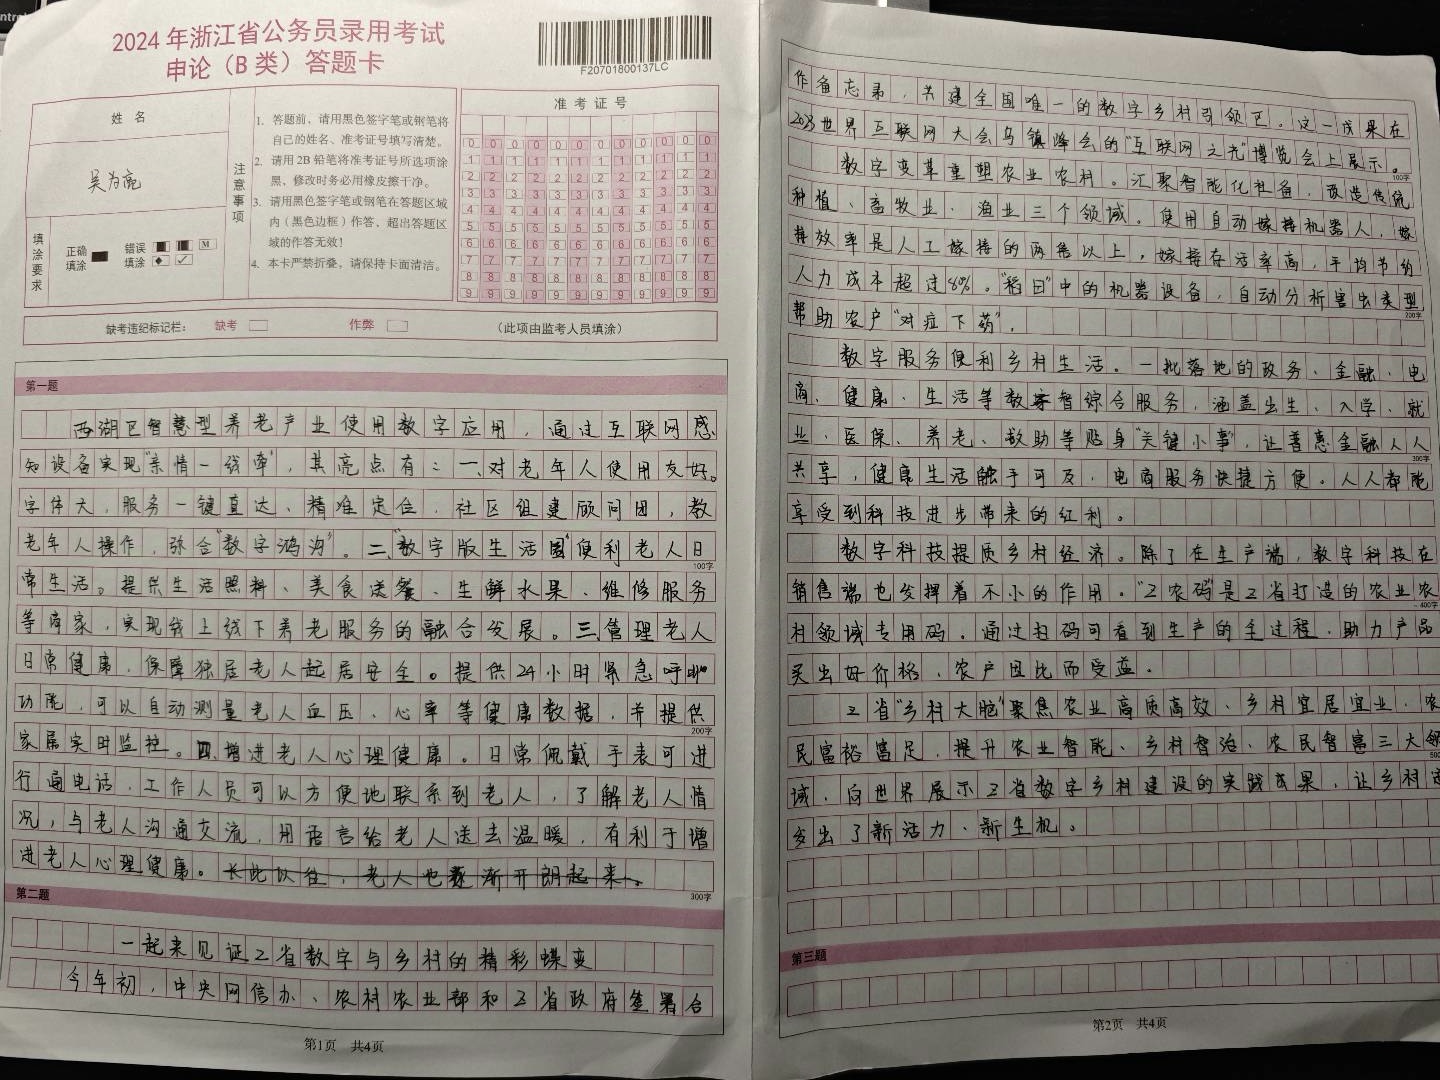 2024年浙江省公务员录用考试
申论（B类）答题卡
F20701800137LC
姓 名
吴为亮
注意事项
1. 答题前，请用黑色签字笔或钢笔将
自己的姓名、准考证号填写清楚。
2. 请用2B铅笔将准考证号所选项涂
黑，修改时务必用橡皮擦干净。
3. 请用黑色签字笔或钢笔在答题区域
内（黑色边框）作答，超出答题区
域的作答无效！
4. 本卡严禁折叠，请保持卡面清洁。
准 考 证 号
0 0 0 0 0 0 0 0 0 0 0 0
1 1 1 1 1 1 1 1 1 1 1 1
2 2 2 2 2 2 2 2 2 2 2 2
3 3 3 3 3 3 3 3 3 3 3 3
4 4 4 4 4 4 4 4 4 4 4 4
5 5 5 5 5 5 5 5 5 5 5 5
6 6 6 6 6 6 6 6 6 6 6 6
7 7 7 7 7 7 7 7 7 7 7 7
8 8 8 8 8 8 8 8 8 8 8 8
9 9 9 9 9 9 9 9 9 9 9 9
填涂要求
正确填涂
错误填涂
缺考违纪标记栏： 缺考 作弊 （此项由监考人员填涂）
第一题
西湖区智慧型养老产业使用数字应用，通过互联网感
知设备实现“亲情一线牵”，其亮点有：一、对老年人使用友好。
字体大，服务一键直达、精准定位，社区组建顾问团，教
老年人操作，弥合“数字鸿沟”。二、“数字版生活圈”便利老人日
100字
常生活。提供生活照料、美食送餐、生鲜水果、维修服务
等商家，实现线上线下养老服务的融合发展。三、管理老人
日常健康，保障独居老人起居安全。提供24小时紧急呼叫
功能，可以自动测量老人血压、心率等健康数据，并提供
200字
家属实时监控。四、增进老人心理健康。日常佩戴手表可进
行通电话，工作人员可以方便地联系到老人，了解老人情
况，与老人沟通交流，用语言给老人送去温暖，有利于增
进老人心理健康。长此以往，老人也逐渐开朗起来。
300字
第二题
一起来见证Z省数字与乡村的精彩蝶变
今年初，中央网信办、农村农业部和Z省政府签署合
第1页 共4页
作备忘录，共建全国唯一的数字乡村引领区。这一成果在
2023世界互联网大会乌镇峰会的“互联网之光”博览会上展示。
100字
数字变革重塑农业农村。汇聚智能化社备，改造传统
种植、畜牧业、渔业三个领域。使用自动嫁接机器人，嫁
接效率是人工嫁接的两倍以上，嫁接存活率高，平均节约
人力成本超过40%。“稻田”中的机器设备，自动分析害虫类型
200字
帮助农户“对症下药”。
数字服务便利乡村生活。一批落地的政务、金融、电
商、健康、生活等数字智综合服务，涵盖出生、入学、就
业、医保、养老、救助等贴身“关键小事”，让普惠金融人人
300字
共享，健康生活触手可及，电商服务快捷方便。人人都能
享受到科技进步带来的红利。
数字科技提质乡村经济。除了在生产端，数字科技在
销售端也发挥着不小的作用。“Z农码”是Z省打造的农业农
400字
村领域专用码。通过扫码可看到生产的全过程，助力产品
卖出好价格，农户因此而受益。
Z省“乡村大脑”聚焦农业高质高效、乡村宜居宜业、农
民富裕富足，提升农业智能、乡村智治、农民智富三大领
500
域，向世界展示Z省数字乡村建设的实践成果，让乡村迸
发出了新活力、新生机。
第三题
第2页 共4页